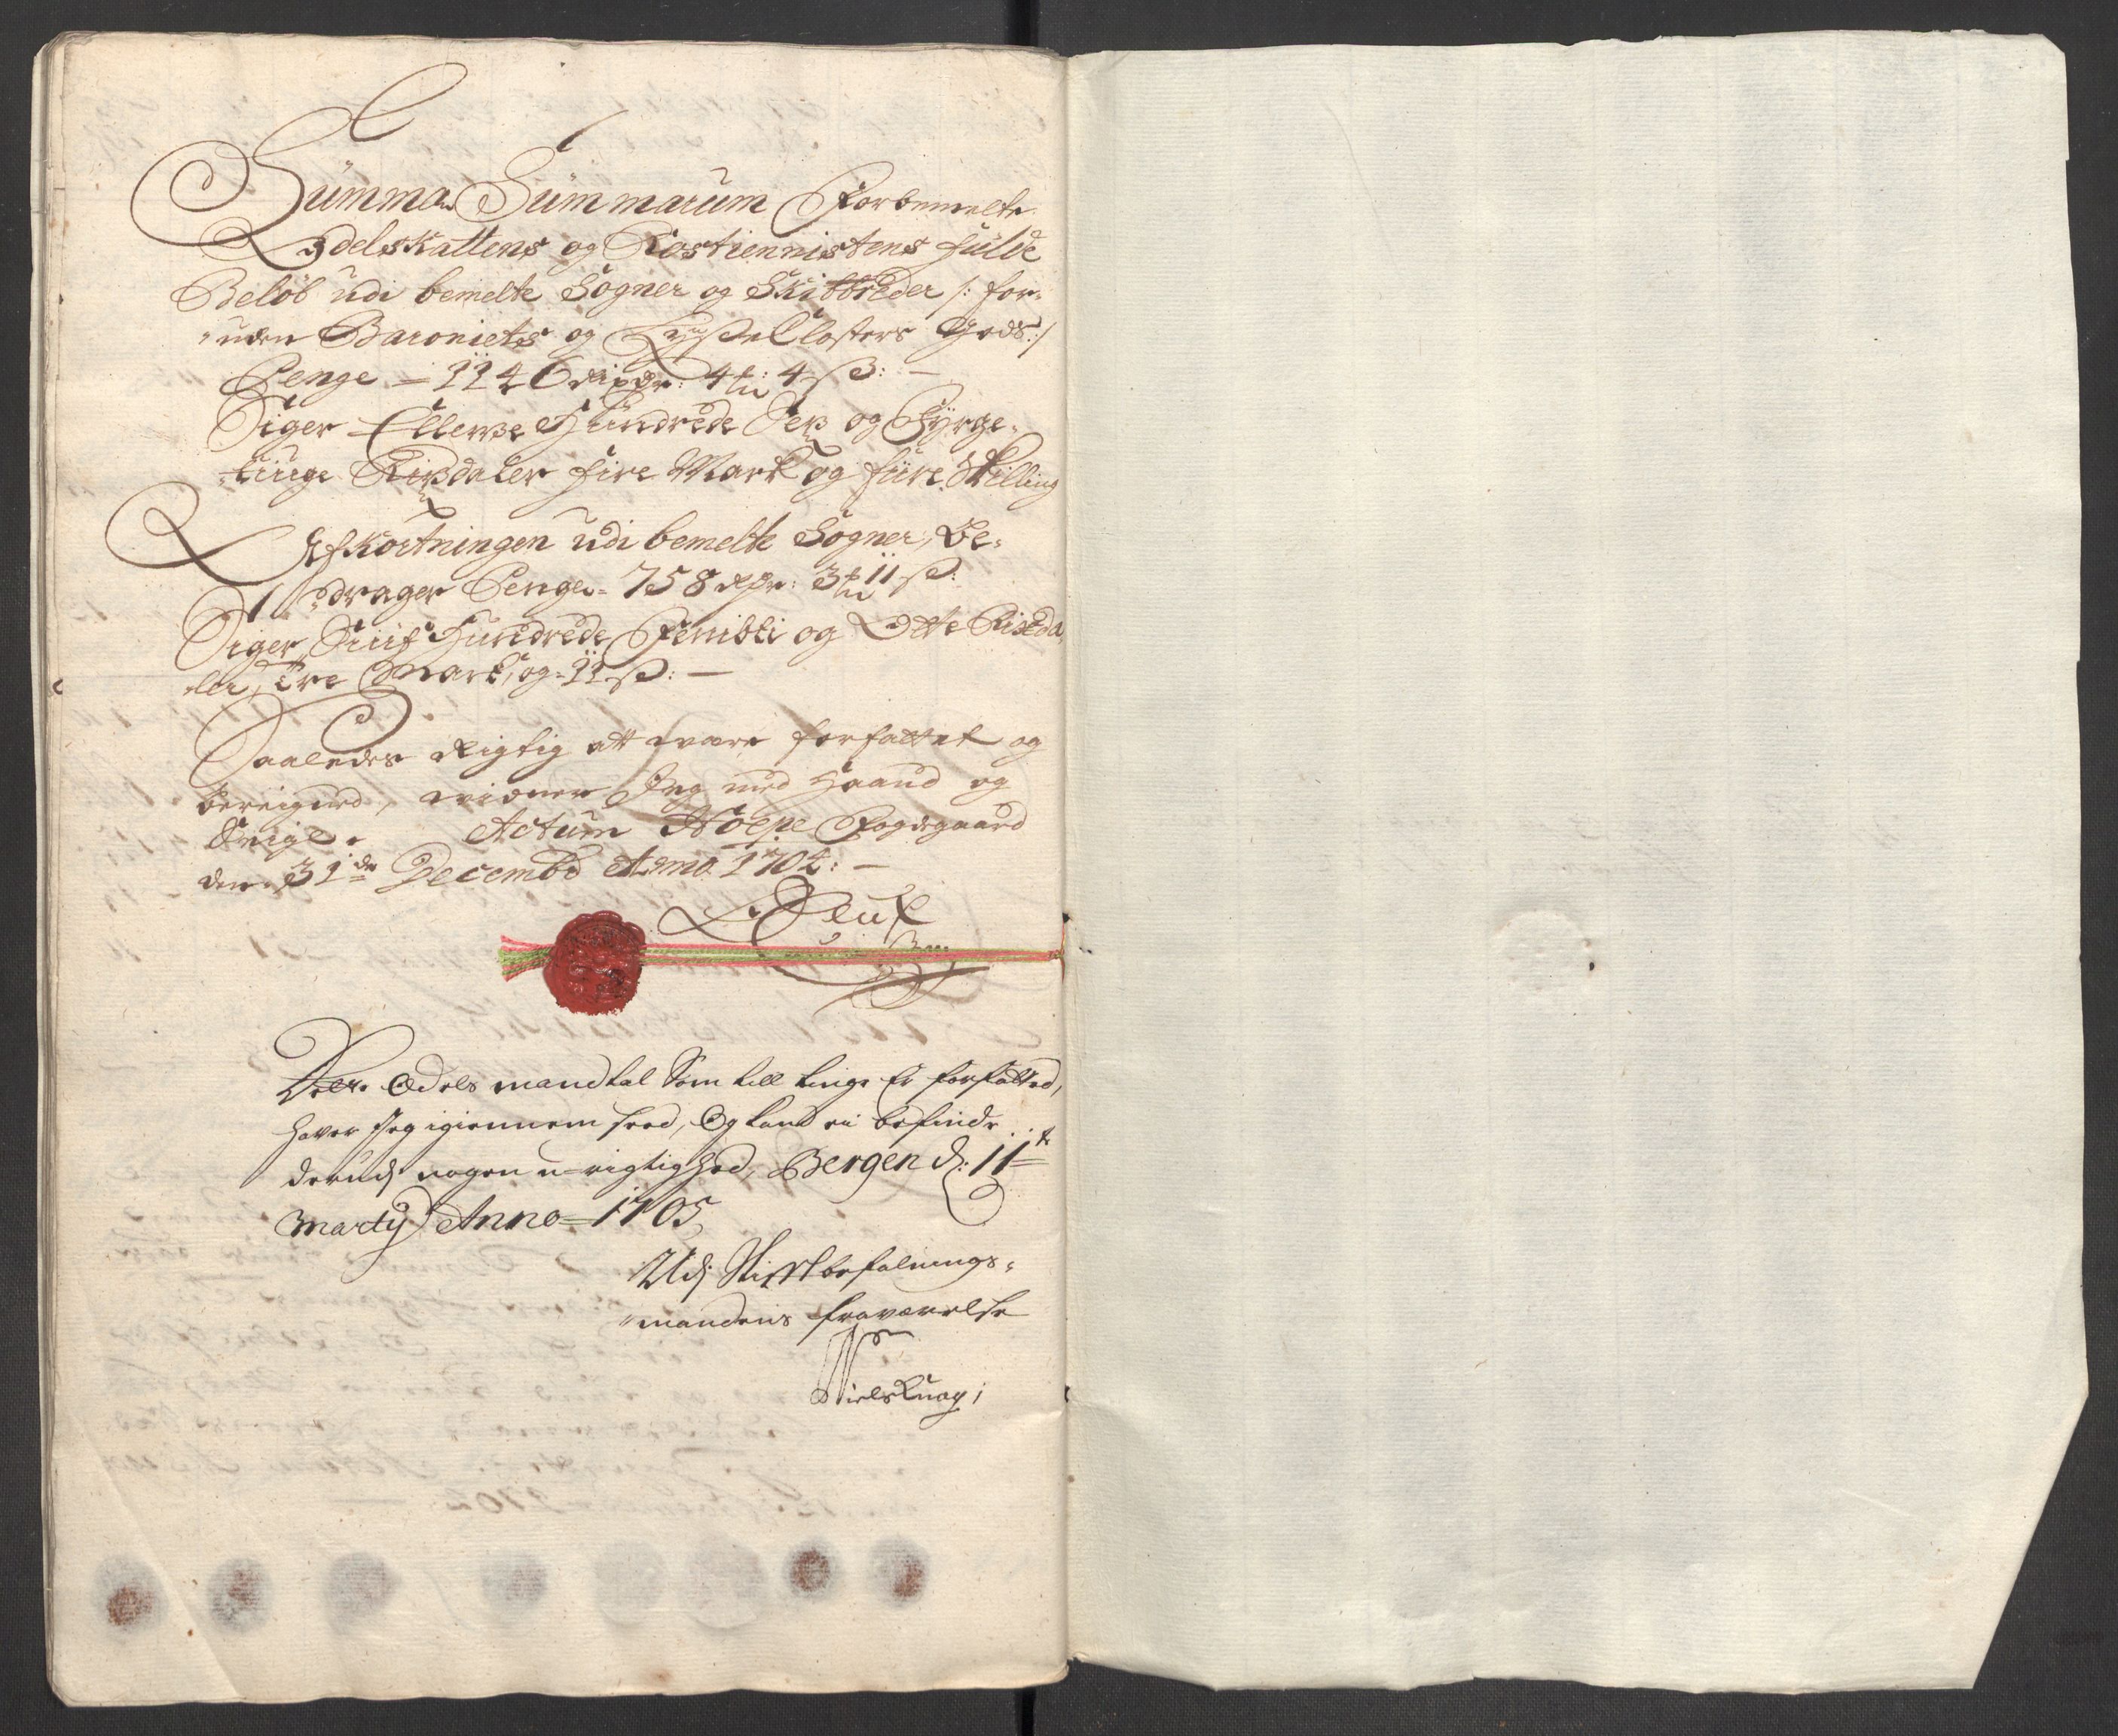 Summa Summarum Forbemelte
Odelskattens og Rostiennistens fulde
Beløb udi bemelte Sogner og Skibbreder /: for-
uden Baroniets og Lysse Closters Gods :/
Penge — 1146 Rixdr: 4 mk: 4 ß: —
Siger Ellewe Hundrede Sex og Fyrge-
tiuge Rixdaler fire Mark og fiire Skilling
Afkortningen udi bemelte Sogner, Be-
drager Penge - 758 Rdr: 3 mk 11 ß:
Siger Siuf Hundrede Fembti og Otte Rixda-
ler, Tre Mark, og - 11 ß: —
Saaledes Rigtig att være forfattet og
bereigned, vidner Jeg med Haand og
Seigl. Actum Hope Fogdgaard
den 31de Decembr Anno 1704: —
Dette Odels mandtal Som till tinge Er forfatted,
haver Jeg igiennem seed, Og kand ei befinde
derudj nogen u-rigtighed, Bergen d: 11te
Martij Anno 1705
Udj Stiftbefalnings-
mandens fraværelse
Niels Knag